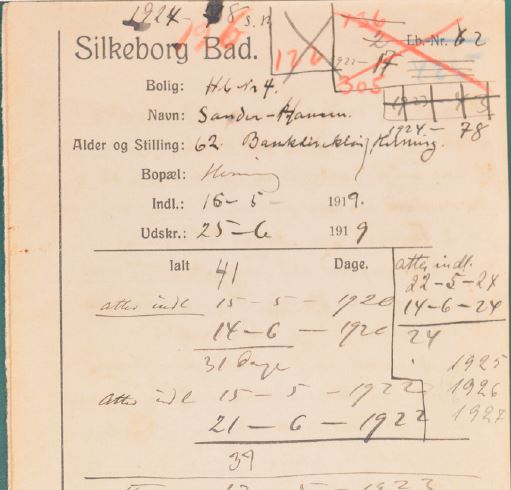 1924 - 78 S. N.
196
126
136
2
1922 - 17
305
Lb.-Nr. 62
Silkeborg Bad.
1923 - 73
1924 - 78
Bolig: Hb Nr 4.
Navn: Sander-Hansen.
Alder og Stilling: 62. Bankdirektör, Herning.
Bopæl: Herning
Indl.: 16 - 5 - 1919.
Udskr.: 25 - 6 1919
Ialt 41 Dage.
atter indl.
22 - 5 - 24
14 - 6 - 24
24
1925
1926
1927
atter indl 15 - 5 - 1920
14 - 6 - 1920
31 Dage
atter indl 15 - 5 - 1922
21 - 6 - 1922
39